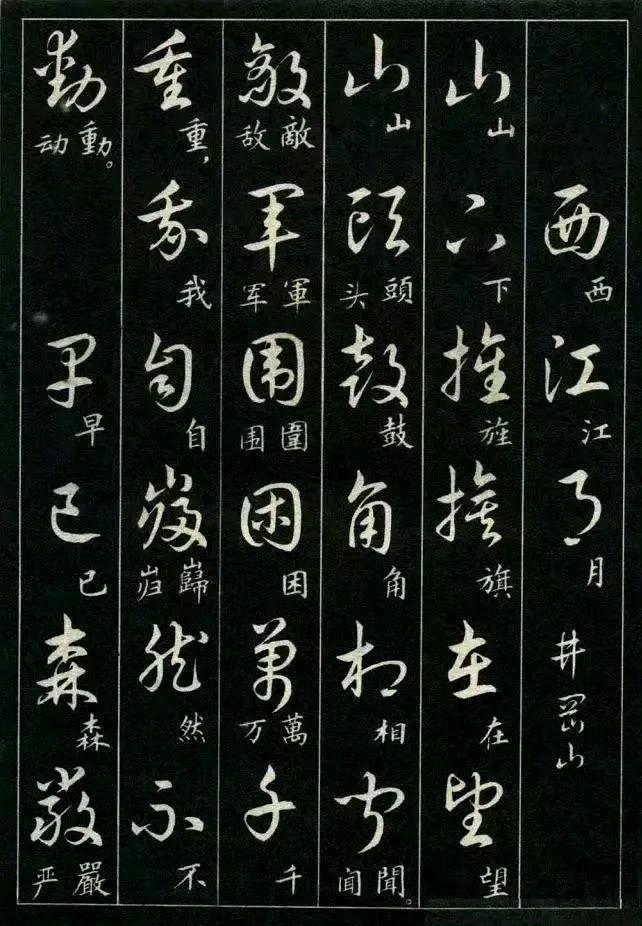 西西江江月月井岡山
山山下下旌旌旗旗在在望望
山山頭頭头鼓鼓角角相相聞聞。闻
敵敵敌軍軍军围圍围困困萬萬万千千
重重，我我自自巋巋岿然然不不
動動。动早早已已森森嚴嚴严